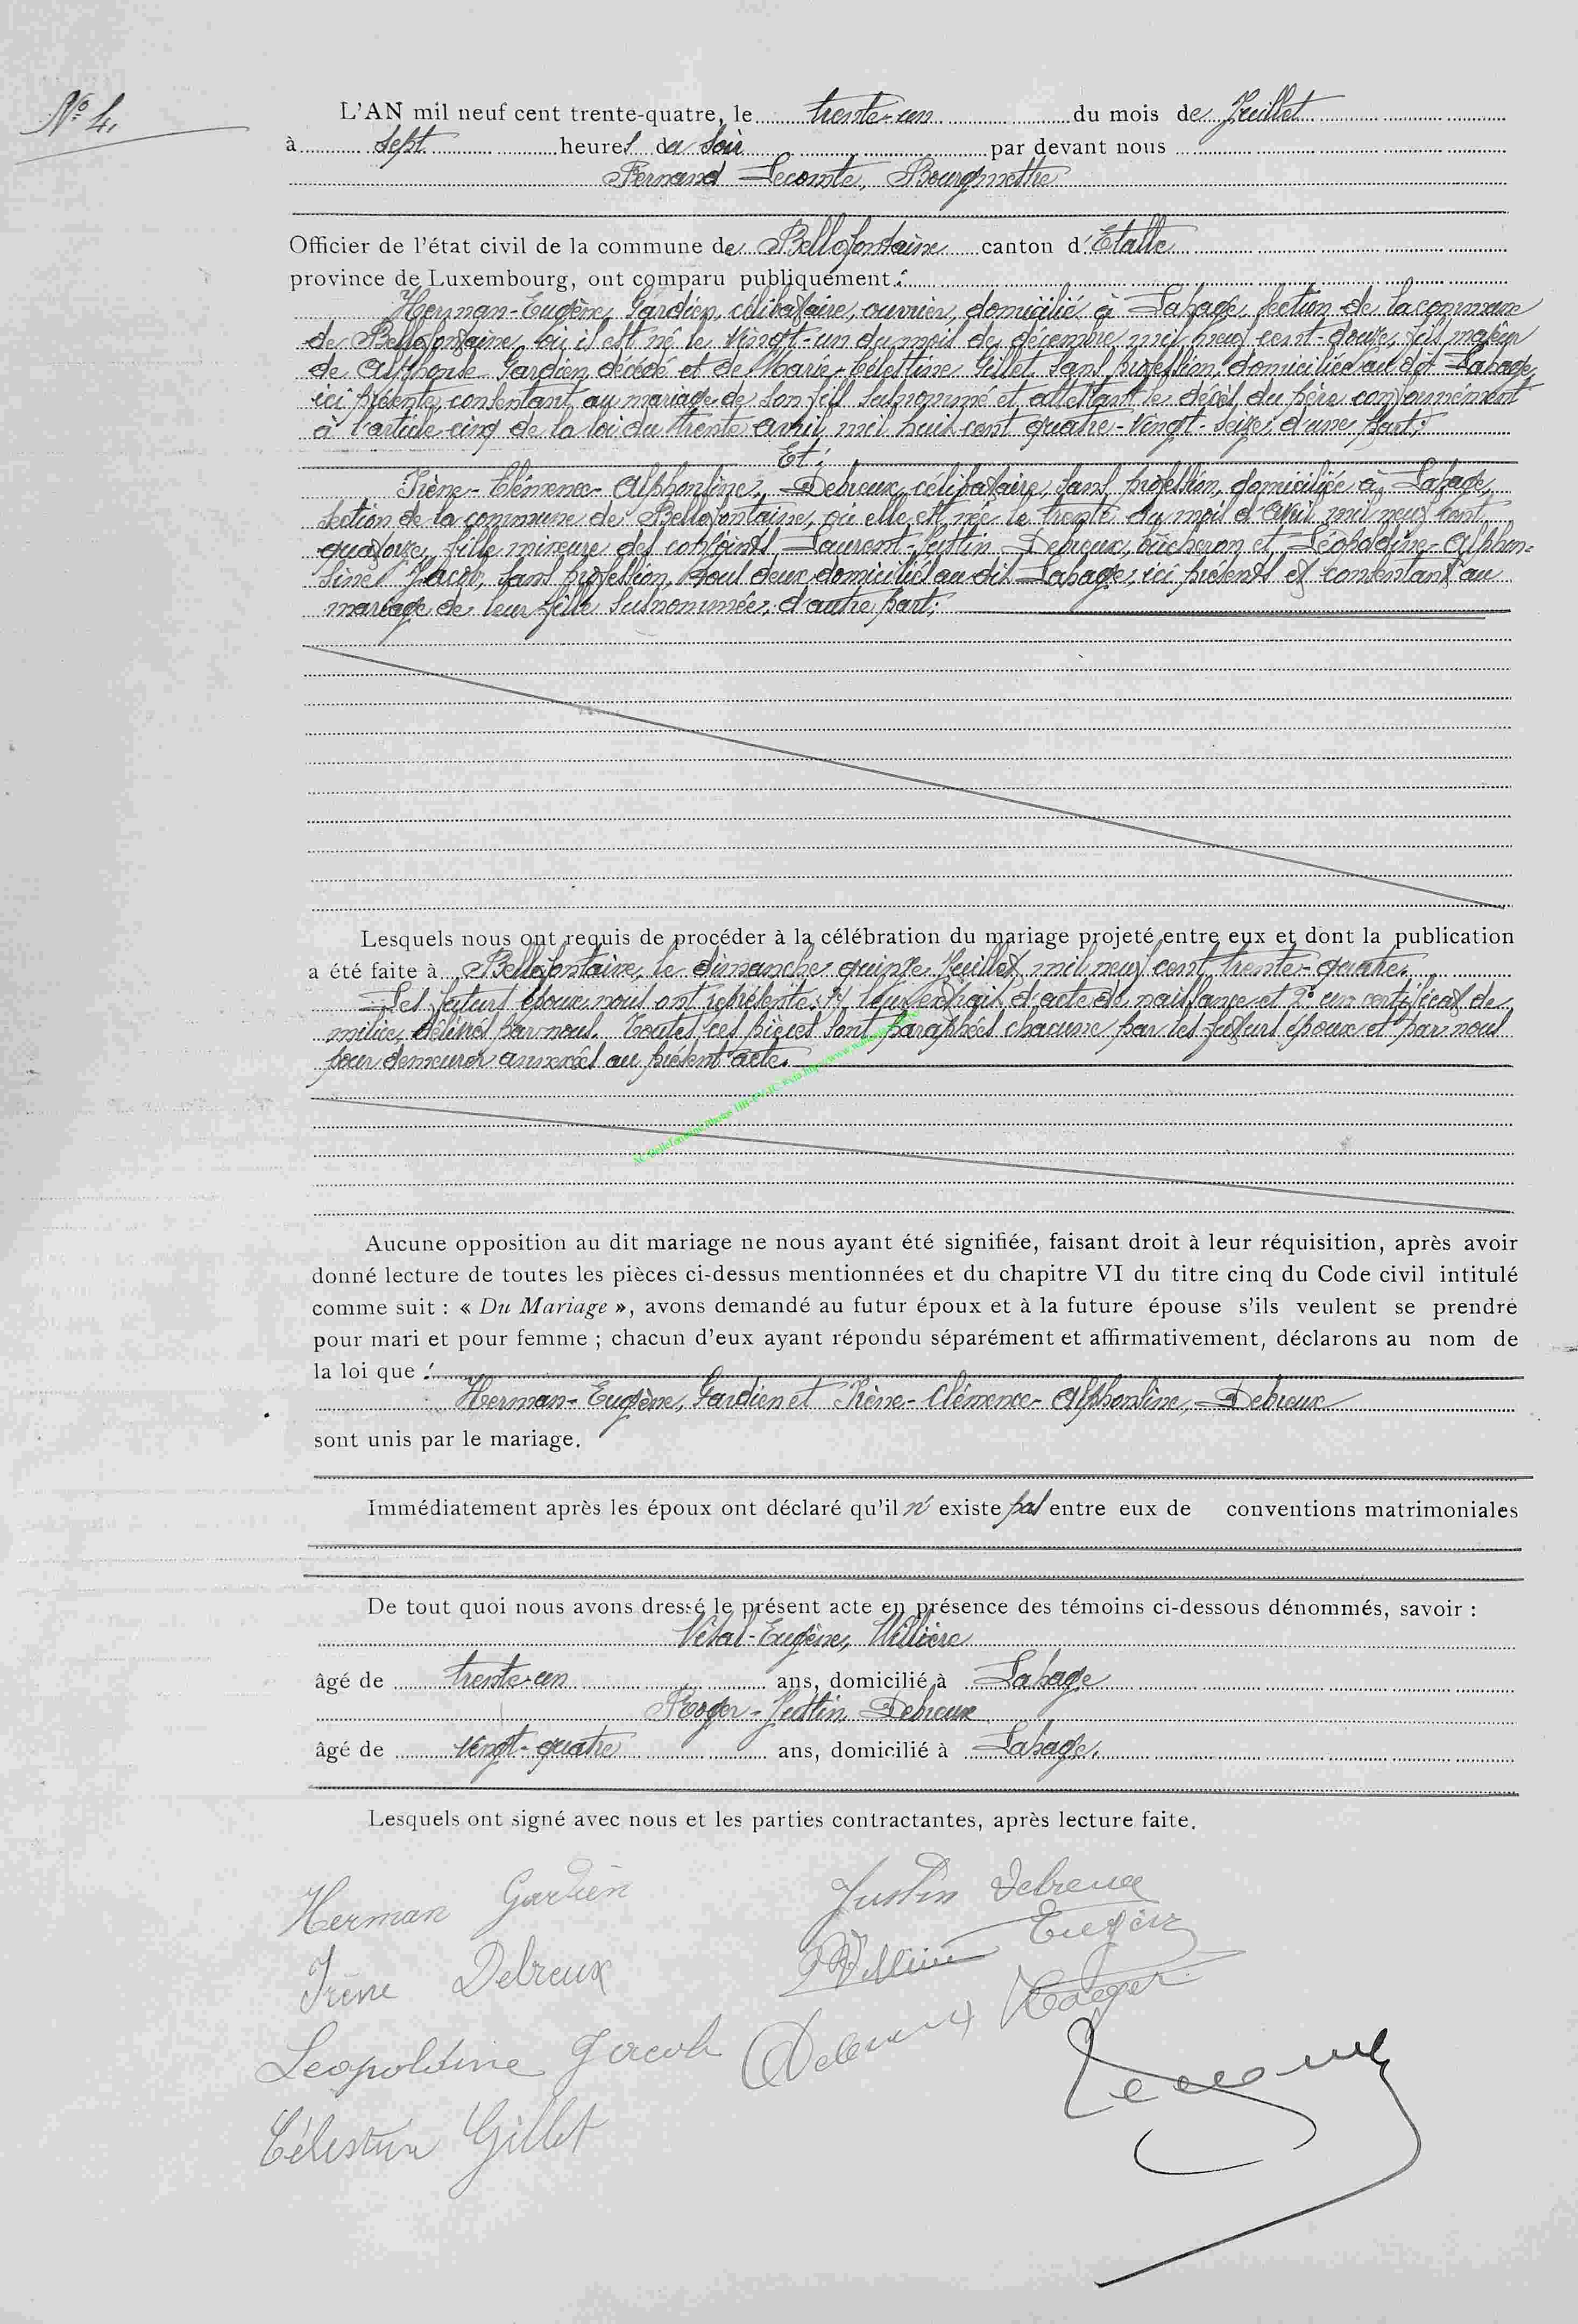 N° 4.
L'AN mil neuf cent trente-quatre, le trente-un du mois de Juillet
à sept heures du soir par devant nous
Fernand Lecomte, Bourgmestre
Officier de l'état civil de la commune de Bellefontaine canton d'Etalle
province de Luxembourg, ont comparu publiquement :
Herman-Eugène, Gardien, célibataire, ouvrier, domicilié à Lahage, section de la commune
de Bellefontaine, où il est né le vingt-un du mois de décembre mil neuf cent-douze, fils majeur
de Alphonse Gardien, décédé et de Marie-Célestine Gillet, sans profession, domiciliée au dit Lahage,
ici présente, consentant au mariage de son fils susnommé et attestant le décès du père conformément
à l'article cinq de la loi du trente avril mil huit cent quatre-vingt-seize, d'une part ;
Et :
Irène-Clémence-Alphonsine, Debreux, célibataire, sans profession, domiciliée à Lahage,
section de la commune de Bellefontaine, où elle est née le trente du mois d'avril mil neuf cent
quatorze, fille mineure des conjoints Laurent-Justin Debreux, bûcheron et Léopoldine-Alphon-
sine Jacob, sans profession, tous deux domiciliés au dit Lahage, ici présents et consentant au
mariage de leur fille susnommée, d'autre part ;
Lesquels nous ont requis de procéder à la célébration du mariage projeté entre eux et dont la publication
a été faite à Bellefontaine, le dimanche quinze Juillet mil neuf cent trente-quatre.
Les futurs époux nous ont représenté : 1° leur extrait d'acte de naissance et 2° un certificat de
milice délivré par nous. Toutes ces pièces sont paraphées chacune par les futurs époux et par nous
pour demeurer annexées au présent acte.
Aucune opposition au dit mariage ne nous ayant été signifiée, faisant droit à leur réquisition, après avoir
donné lecture de toutes les pièces ci-dessus mentionnées et du chapitre VI du titre cinq du Code civil intitulé
comme suit : « Du Mariage », avons demandé au futur époux et à la future épouse s'ils veulent se prendre
pour mari et pour femme ; chacun d'eux ayant répondu séparément et affirmativement, déclarons au nom de
la loi que :
Herman-Eugène, Gardien et Irène-Clémence-Alphonsine, Debreux
sont unis par le mariage.
Immédiatement après les époux ont déclaré qu'il n'existe pas entre eux de conventions matrimoniales
De tout quoi nous avons dressé le présent acte en présence des témoins ci-dessous dénommés, savoir :
Vital-Eugène, Willière
âgé de trente-un ans, domicilié à Lahage
Roger-Justin, Debreux
âgé de vingt-quatre ans, domicilié à Lahage.
Lesquels ont signé avec nous et les parties contractantes, après lecture faite.
Herman Gardien
Justin Debreux
Willière Eugène
Irène Debreux
Debreux Roger
Leopoldine Jacob
Lecomte
Célestine Gillet